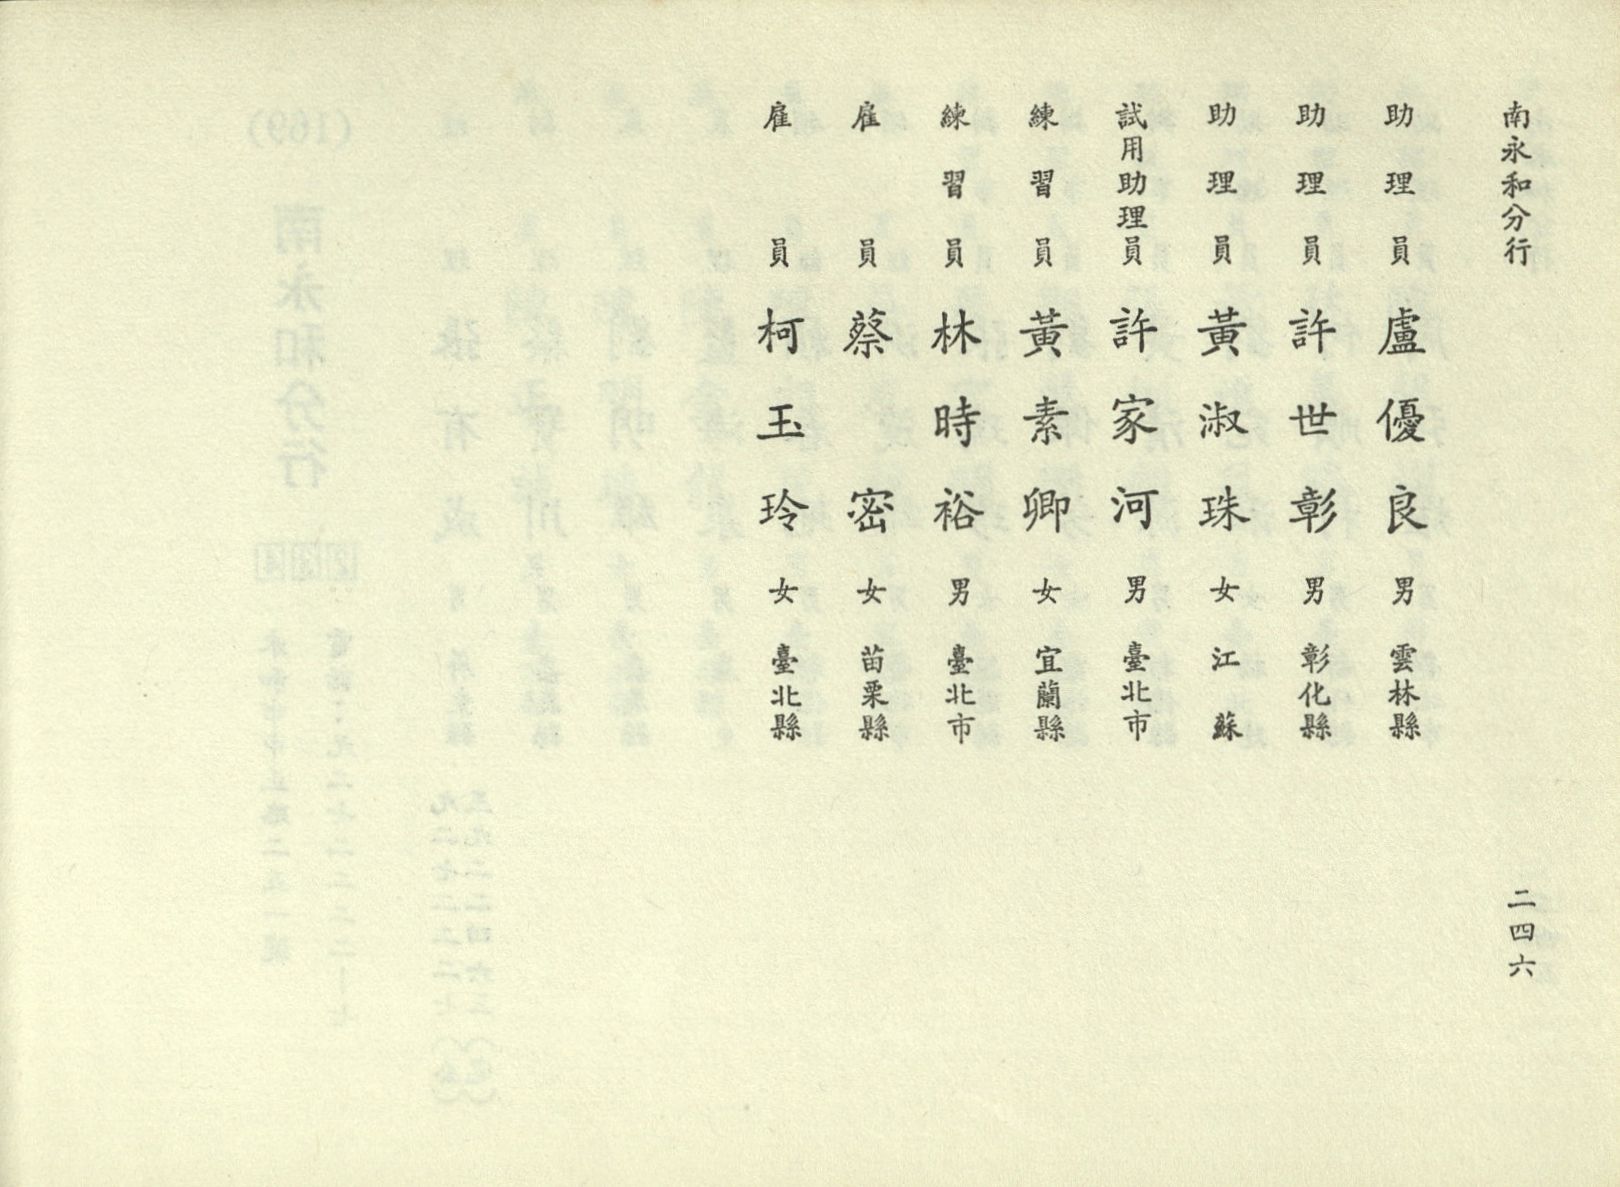 南永和分行
二四六
助理員 盧優良 男 雲林縣
助理員 許世彰 男 彰化縣
助理員 黃淑珠 女 江蘇
試用助理員 許家河 男 臺北市
練習員 黃素卿 女 宜蘭縣
練習員 林時裕 男 臺北市
雇員 蔡密 女 苗栗縣
雇員 柯玉玲 女 臺北縣